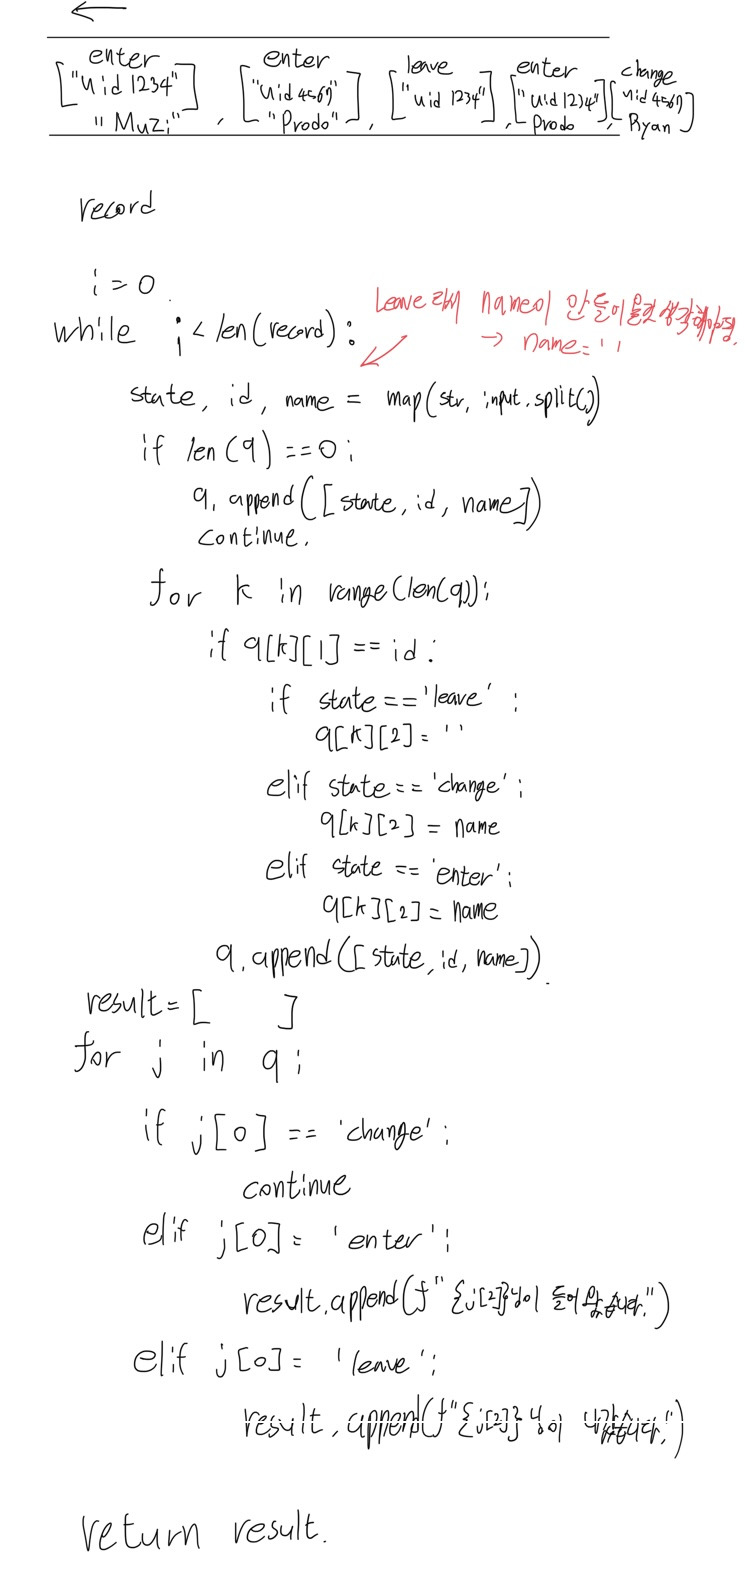 enter enter leave enter change
["uid 1234" "Muzi"], ["uid 4567" "Prodo"], ["uid 1234"], ["uid 1234" Prodo][uid 4567 Ryan]
record
i = 0.
leave 라서 name이 안 들어올것 생각해야됨.
→ name = ' '
while i < len(record):
state, id, name = map(str, input.split())
if len(q) == 0;
q. append([state, id, name])
continue.
for k in range(len(q));
if q[k][1] == id:
if state == 'leave' :
q[k][2] = ' '
elif state == 'change';
q[k][2] = name
elif state == 'enter';
q[k][2] = name
q. append([state, id, name]).
result = [ ]
for j in q;
if j[0] == 'change';
continue
elif j[0] = 'enter';
result.append(f"{j[2]}님이 들어왔습니다.")
elif j[0] = 'leave';
result.append(f"{j[2]}님이 나갔습니다.")
return result.